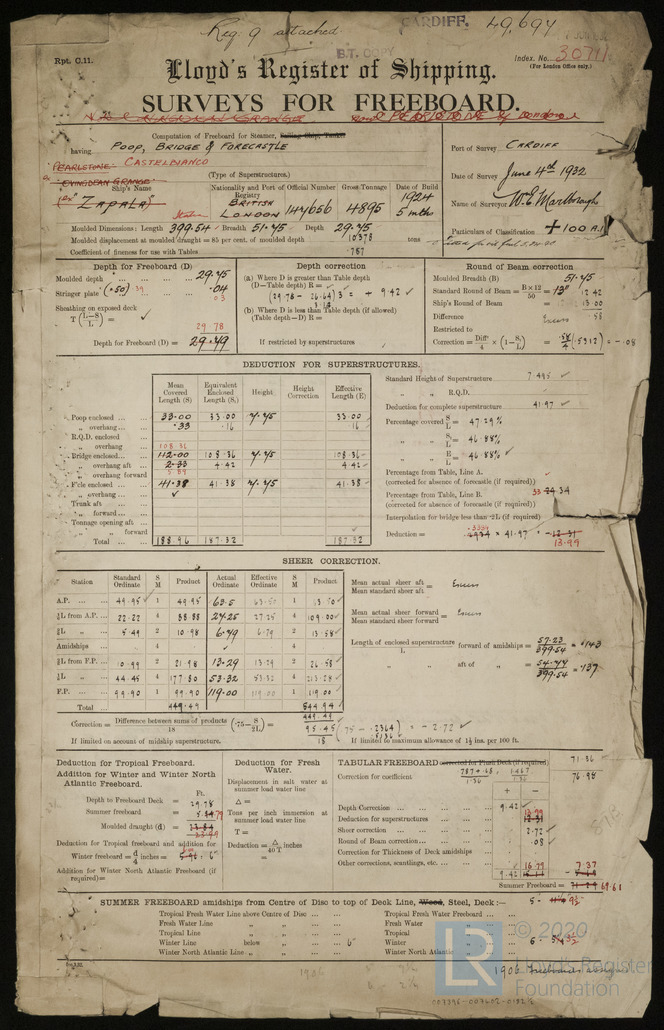 Reg. 9 attached.
CARDIFF.
49,697
B.T. COPY
Rpt. C.11.
Index. No. 30711
(For London Office only.)
Lloyd's Register of Shipping.
SURVEYS FOR FREEBOARD.
Computation of Freeboard for Steamer, Sailing Ship, Tanker
having POOP, BRIDGE & FORECASTLE
(Type of Superstructures.)
PEARLSTONE CASTELBIANCO
OVINGDEAN GRANGE
Ship's Name
(ex) ZAPALA
Nationality and Port of Official Number Gross Tonnage Date of Build
Registry
BRITISH
LONDON 147656 4895 1924 5 mths
Italian
Port of Survey CARDIFF
Date of Survey June 4th 1932
Name of Surveyor Wm E Marlborough
Particulars of Classification +100 A.1.
Moulded Dimensions: Length 399.54 Breadth 51.45 Depth 29.45
Moulded displacement at moulded draught = 85 per cent. of moulded depth 10378 tons
Coefficient of fineness for use with Tables .787
Depth for Freeboard (D)
Moulded depth 29.45
Stringer plate (.50) .04
03
Sheathing on exposed deck
T (L-S / L) =
29 78
Depth for Freeboard (D) = 29.49
Depth correction
(a) Where D is greater than Table depth
(D—Table depth) R =
(29.78 - 26.64) 3 = + 9.42
(b) Where D is less than Table depth (if allowed)
(Table depth—D) R =
If restricted by superstructures
Round of Beam correction
Moulded Breadth (B) 51.45
Standard Round of Beam = B×12 / 50 = 12.42
Ship's Round of Beam = 13.00
Difference Excess .58
Restricted to
Correction = Diffce / 4 × (1—S1 / L) = .58 / 4 (.5312) = -.08
DEDUCTION FOR SUPERSTRUCTURES.
Mean Covered Length (S) Equivalent Enclosed Length (S1) Height Height Correction Effective Length (E)
Poop enclosed 33.00 33.00 7.45 33.00
„ overhang .33 .16 .16
R.Q.D. enclosed
„ overhang
108.36
Bridge enclosed 112.00 108.36 7.45 108.36
„ overhang aft 2.33 4.42 4.42
„ overhang forward 5.89
F'cle enclosed 41.38 41.38 7.45 41.38
„ overhang
Trunk aft
„ forward
Tonnage opening aft
„ „ forward
Total 188.96 187.32 187.32
Standard Height of Superstructure 7.495
„ „ R.Q.D.
Deduction for complete superstructure 41.97
Percentage covered S / L = 47.29%
„ „ S1 / L = 46.88%
„ „ E / L = 46.88%
Percentage from Table, Line A.
(corrected for absence of forecastle (if required))
Percentage from Table, Line B. 33.34
(corrected for absence of forecastle (if required))
Interpolation for bridge less than ·2L (if required)
Deduction = .3334 × 41.97 = -13.99
SHEER CORRECTION.
Station Standard Ordinate S M Product Actual Ordinate Effective Ordinate S M Product
A.P. 49.95 1 49.95 63.5 63.50 1 63.50
⅙L from A.P. 22.22 4 88.88 27.25 27.25 4 109.00
⅓L „ 5.49 2 10.98 6.79 6.79 2 13.58
Amidships 4 4
⅓L from F.P. 10.99 2 21.98 13.29 13.29 2 26.58
⅙L „ 44.45 4 177.80 53.32 53.32 4 213.28
F.P. 99.90 1 99.90 119.00 119.00 1 119.00
Total 449.49 544.94
Mean actual sheer aft / Mean standard sheer aft = Excess
Mean actual sheer forward / Mean standard sheer forward = Excess
Length of enclosed superstructure / L forward of amidships = 57.23 / 399.54 = .143
„ „ aft of „ = 54.77 / 399.54 = .137
Correction = Difference between sums of products / 18 (·75—S / 2L) = 95.45 / 18 (.75 - .2364) = - 2.72
449.49
If limited on account of midship superstructure.
If limited to maximum allowance of 1½ ins. per 100 ft.
Deduction for Tropical Freeboard.
Addition for Winter and Winter North Atlantic Freeboard.
Ft.
Depth to Freeboard Deck = 29.78
Summer freeboard = 5.79
Moulded draught (d) = 23.99
Deduction for Tropical freeboard and addition for
Winter freeboard = d / 4 inches = 6"
Addition for Winter North Atlantic Freeboard (if required) =
Deduction for Fresh Water.
Displacement in salt water at summer load water line
Δ =
Tons per inch immersion at summer load water line
T =
Deduction = Δ / 40 T inches
=
TABULAR FREEBOARD corrected for Flush Deck (if required) 71.36
Correction for coefficient .787+.68 / 1.36 1.467 / 1.36 76.98
+ -
Depth Correction 9.42
Deduction for superstructures 13.99
Sheer correction 2.72
Round of Beam correction .08
Correction for Thickness of Deck amidships
Other corrections, scantlings, etc.
9.42 16.79 7.37
Summer Freeboard = 69.61
SUMMER FREEBOARD amidships from Centre of Disc to top of Deck Line, Wood, Steel, Deck:— 5 - 9½
Tropical Fresh Water Line above Centre of Disc
Fresh Water Line „ „
Tropical Line „ „
Winter Line below „ 6"
Winter North Atlantic Line „ „
Tropical Fresh Water Freeboard
Fresh Water „
Tropical „
Winter „ 6 - 3½
Winter North Atlantic „
1906 Freeboards assigned
© 2020
Lloyd's Register
Foundation
LR